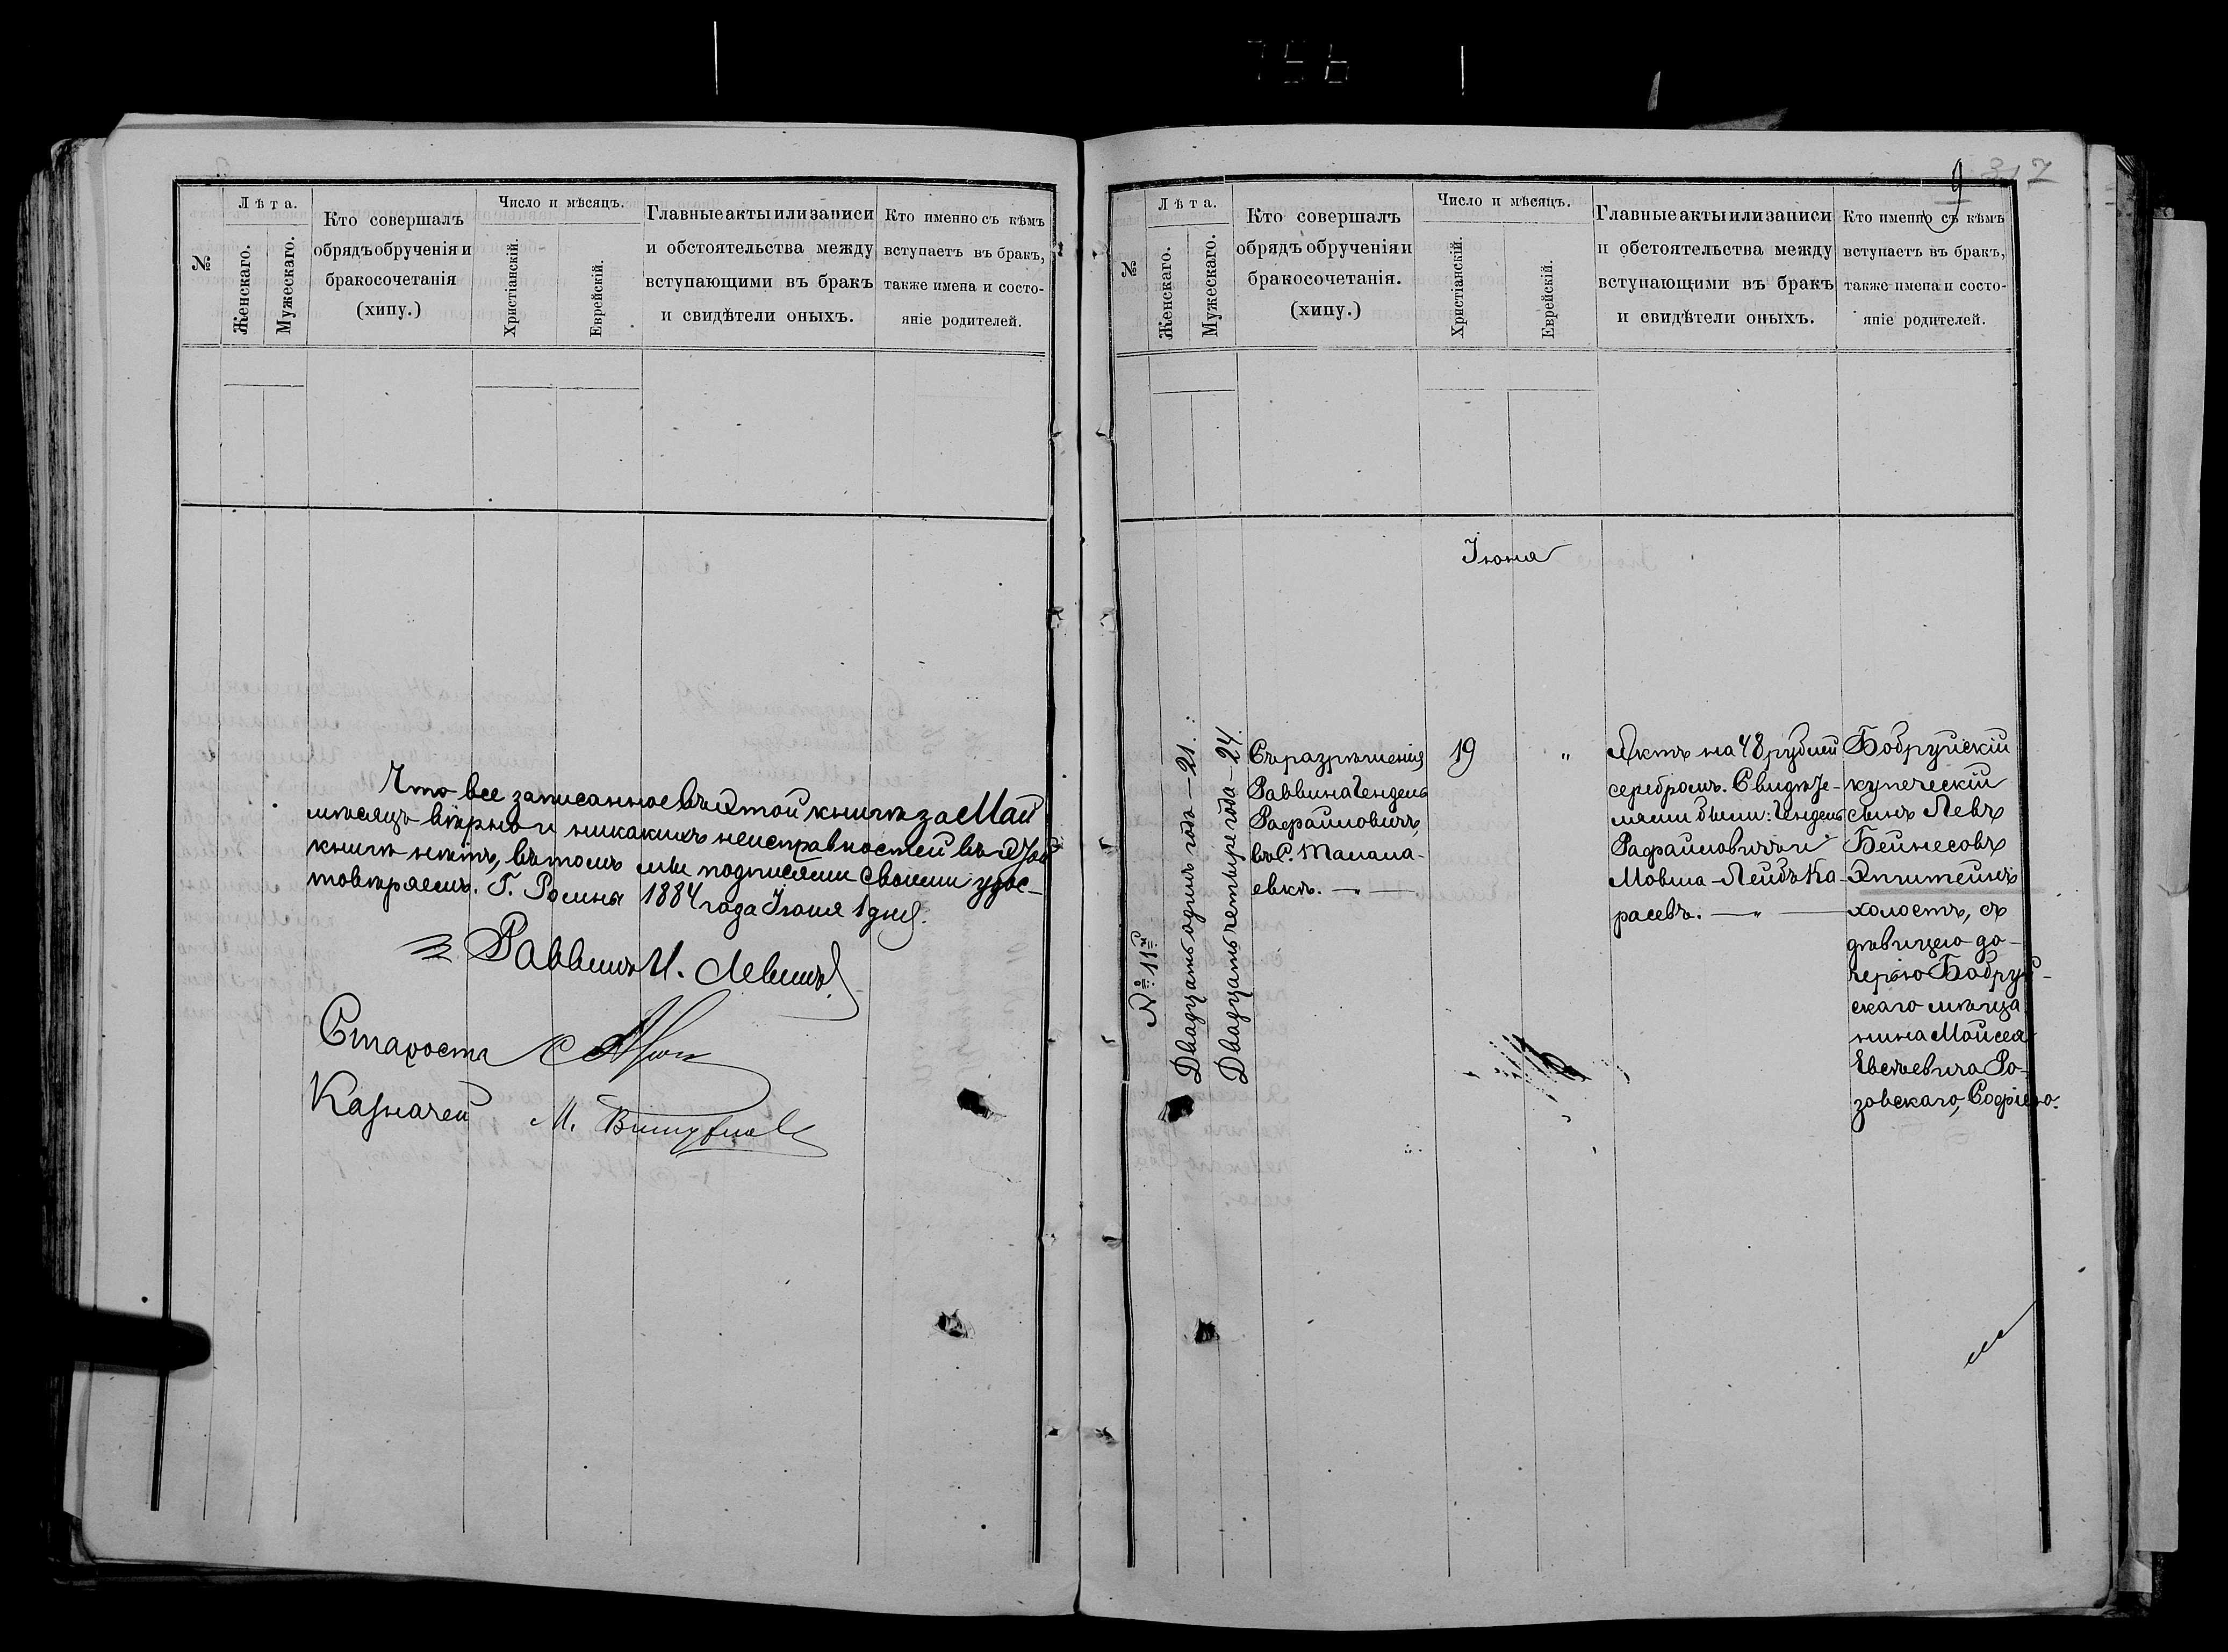 №
Лѣта.
Женскаго.
Мужескаго.
Кто совершалъ
обрядъ обрученія и
бракосочетанія
(хипу.)
Число и мѣсяцъ.
Христіанскій.
Еврейскій.
Главные акты или записи
и обстоятельства между
вступающими въ бракъ
и свидѣтели оныхъ.
Кто именно съ кѣмъ
вступаетъ въ бракъ,
также имена и состо-
яніе родителей.
Что все записанное въ этой книгѣ за Май
мѣсяцъ вѣрно и никакихъ неисправностей въ
книгѣ нѣтъ, въ томъ мы подписями своими удос-
товѣряемъ. Г. Ромны 1884 года Іюня 1 дня.
Раввинъ И. Левинъ
Староста
Казначей М.
317
№
Лѣта.
Женскаго.
Мужескаго.
Кто совершалъ
обрядъ обрученія и
бракосочетанія.
(хипу.)
Число и мѣсяцъ.
Христіанскій.
Еврейскій.
Главные акты или записи
и обстоятельства между
вступающими въ бракъ
и свидѣтели оныхъ.
Кто именно съ кѣмъ
вступаетъ въ бракъ,
также имена и состо-
яніе родителей.
Іюня
№ 11й
Двадцать одинъ годъ — 21.
Двадцать четыре года — 24.
Съ разрѣшенія
Раввина Гендель
Рафаиловичъ,
въ С. Талала-
евкѣ. — „ —
19
„
Актъ на 48 рублей
серебромъ. Свидѣте-
лями были: Гендель
Рафаиловичъ и
Мовша-Лейбъ Ка-
расевъ. — „ —
Бобруйскій
купеческій
сынъ Левъ
Бейнесовъ
Эпштейнъ
холостъ, съ
дѣвицею до-
черью Бобруй-
скаго мѣща
нина Моисея
Евсѣевича Ро-
зовскаго, Софіею.